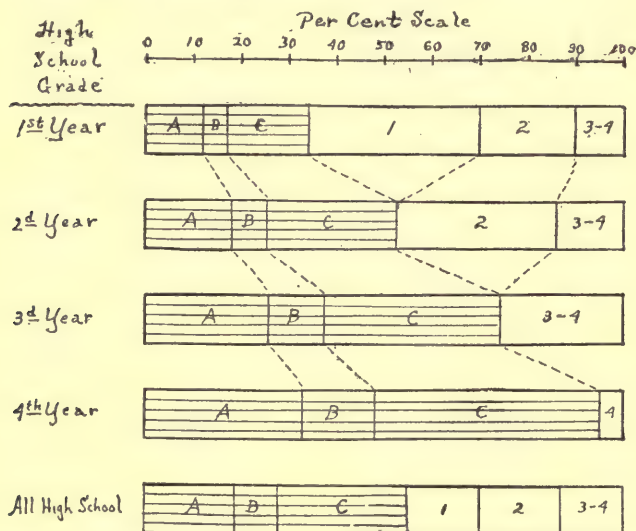 High
School
Grade
Per Cent Scale
0 10 20 30 40 50 60 70 80 90 100
1st Year A B C 1 2 3-4
2d Year A B C 2 3-4
3d Year A B C 3-4
4th Year A B C 4
All High School A B C 1 2 3-4